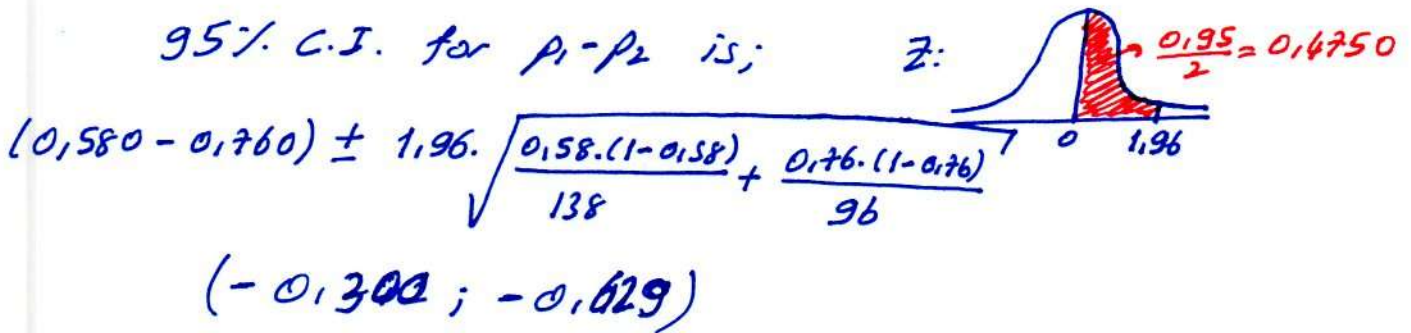 95%. C.I. for p₁-p₂ is; z: 0,95/2 = 0,4750
(0,580 - 0,760) ± 1,96. √(0,58.(1-0,58)/138 + 0,76.(1-0,76)/96)
0 1,96
(-0,300 ; -0,629)